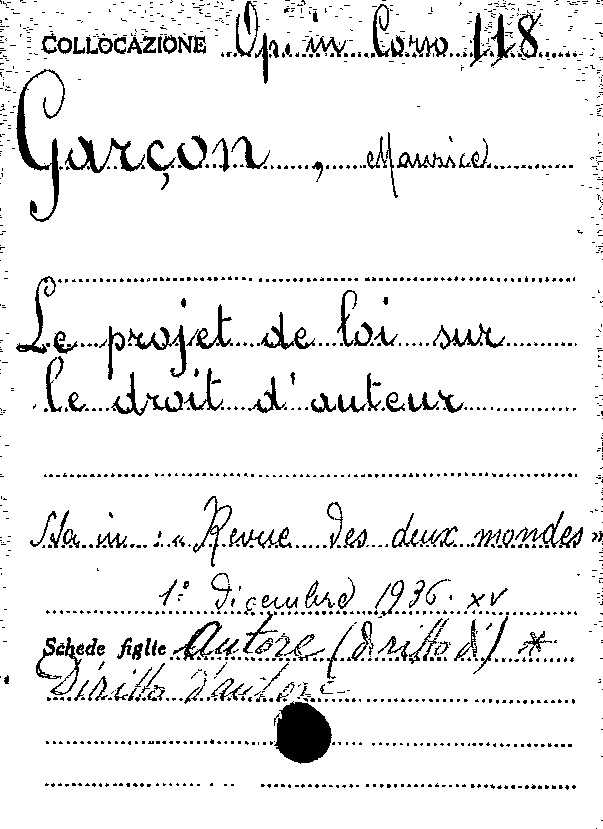 COLLOCAZIONE Op. in Corso 118
Garçon, Maurice
Le projet de loi sur
le droit d'auteur
Sta in : « Revue des deux mondes »
1º dicembre 1936. XV
Schede figlie Autore (diritto d') *
Diritto d'autore